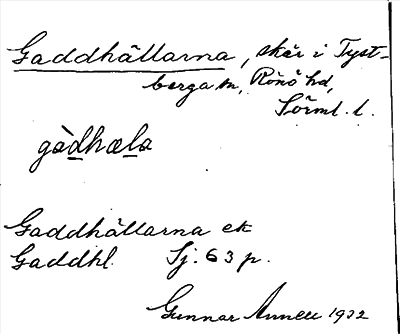 Gaddhällarna, skär i Tyst-
berga sn, Rönö hd,
Sörml. l.
gàdhæla
Gaddhällarna ek
Gaddhl. Sj. 63 p.
Gunnar Annell 1932